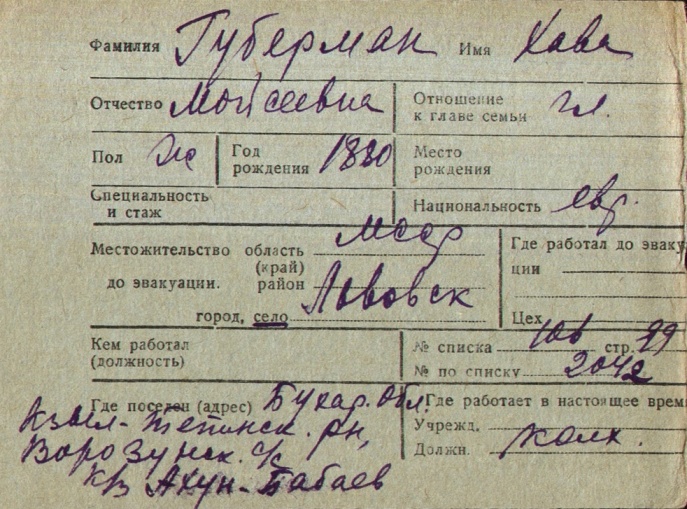 Фамилия Губерман Имя Хава
Отчество Мойсеевна Отношение к главе семьи гл.
Пол ж Год рождения 1880 Место рождения
Специальность и стаж Национальность евр.
Местожительство до эвакуации. область (край) МССР Где работал до эваку
район ции
город, село Лововск
Цех
Кем работал (должность) № списка 10в стр. 99
№ по списку 2042
Где поселен (адрес) Бухар. обл. Где работает в настоящее врем
Кзыл-Тепинск. рн, Учрежд.
Ворозунск. с/с Должн. колх.
кз Ахун-Бабаев